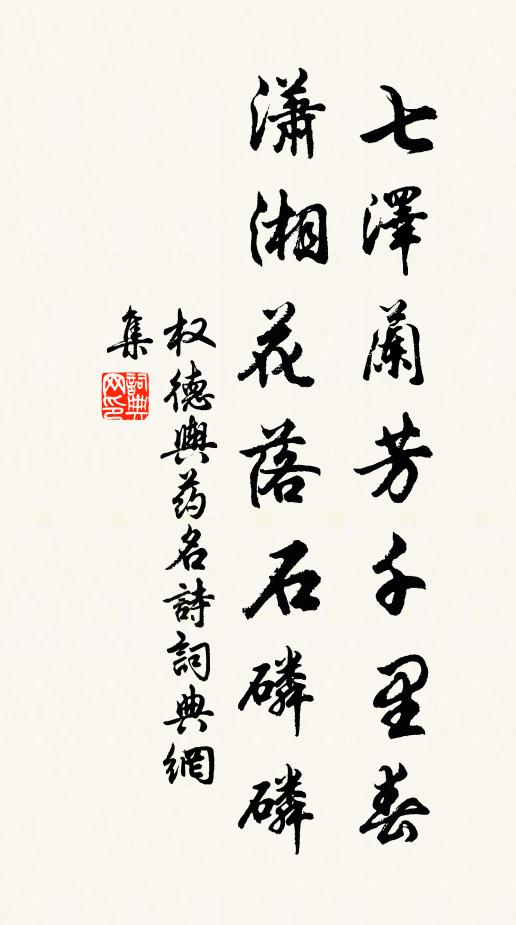 七澤蘭芳千里春
瀟湘花落石磷磷
权德輿药名詩詞典網
集
詞典网印